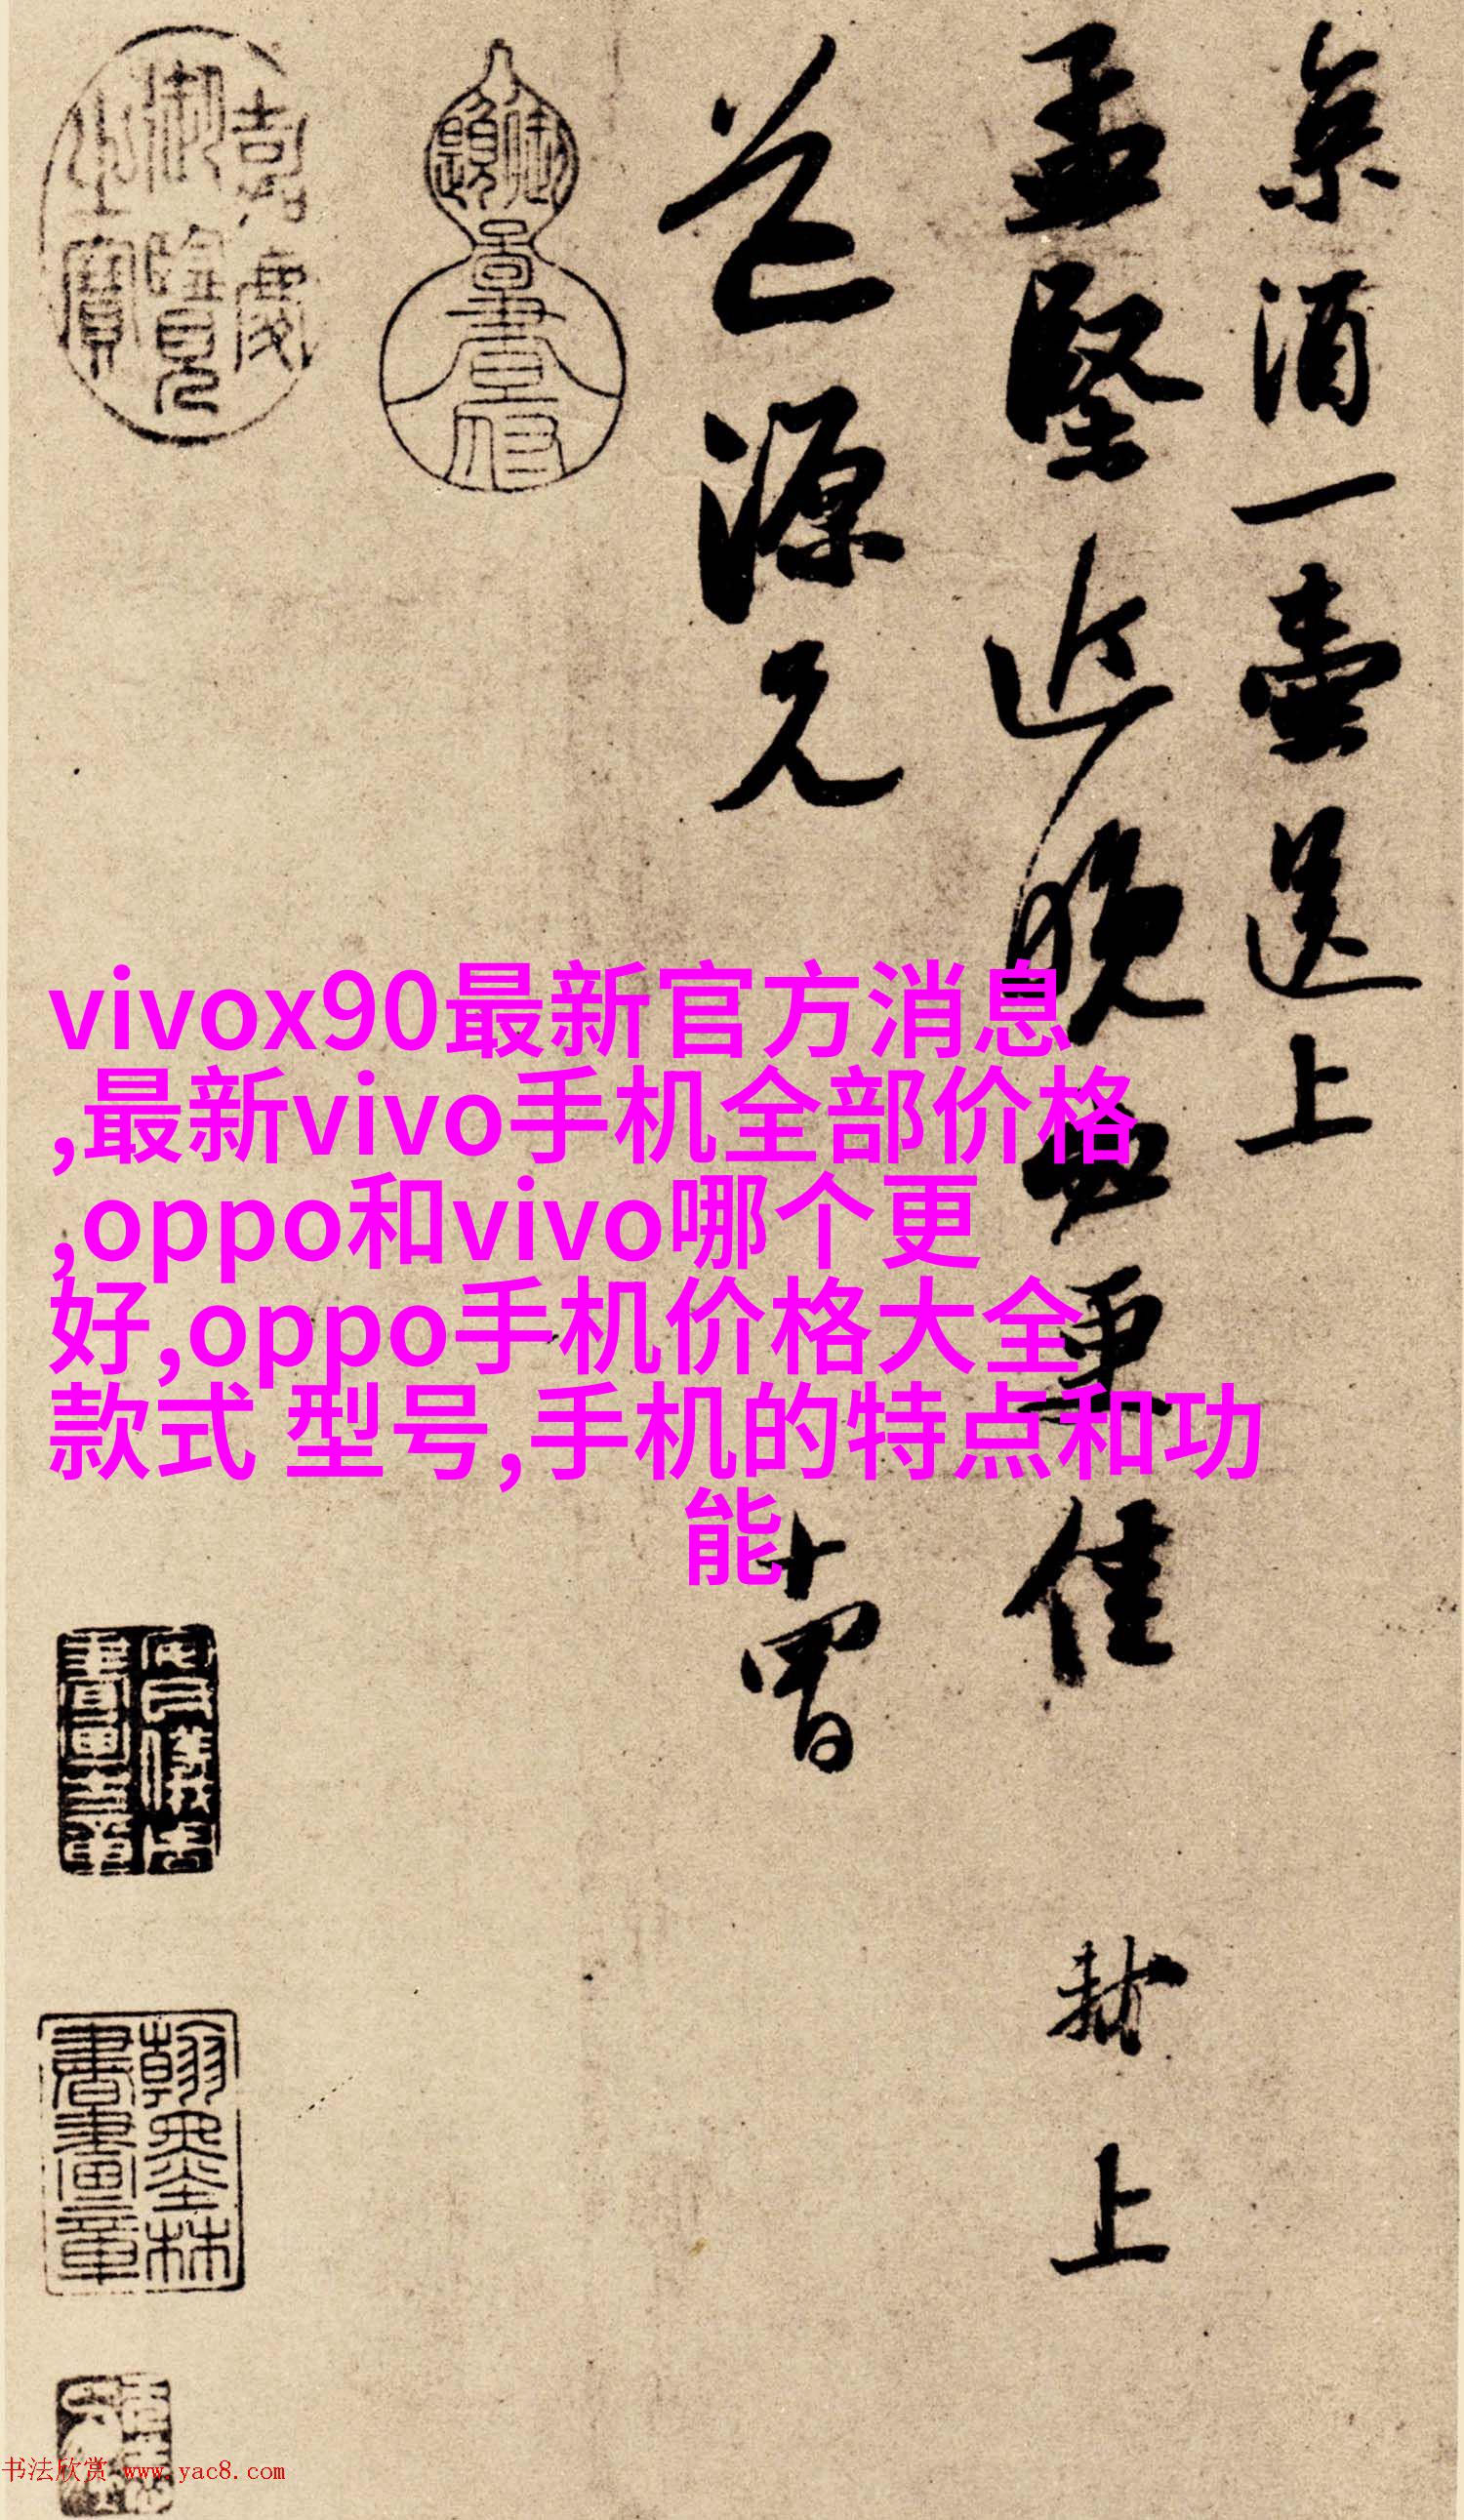 京酒一壶送上
孟坚近晚必更佳
轼上
道源兄
十四日
御书
画图府
嘉庆
御览
之宝
翰墨林
书画章
vivox90最新官方消息
,最新vivo手机全部价格
,oppo和vivo哪个更
好,oppo手机价格大全
款式 型号,手机的特点和功
能
书法欣赏 www.yac8.com